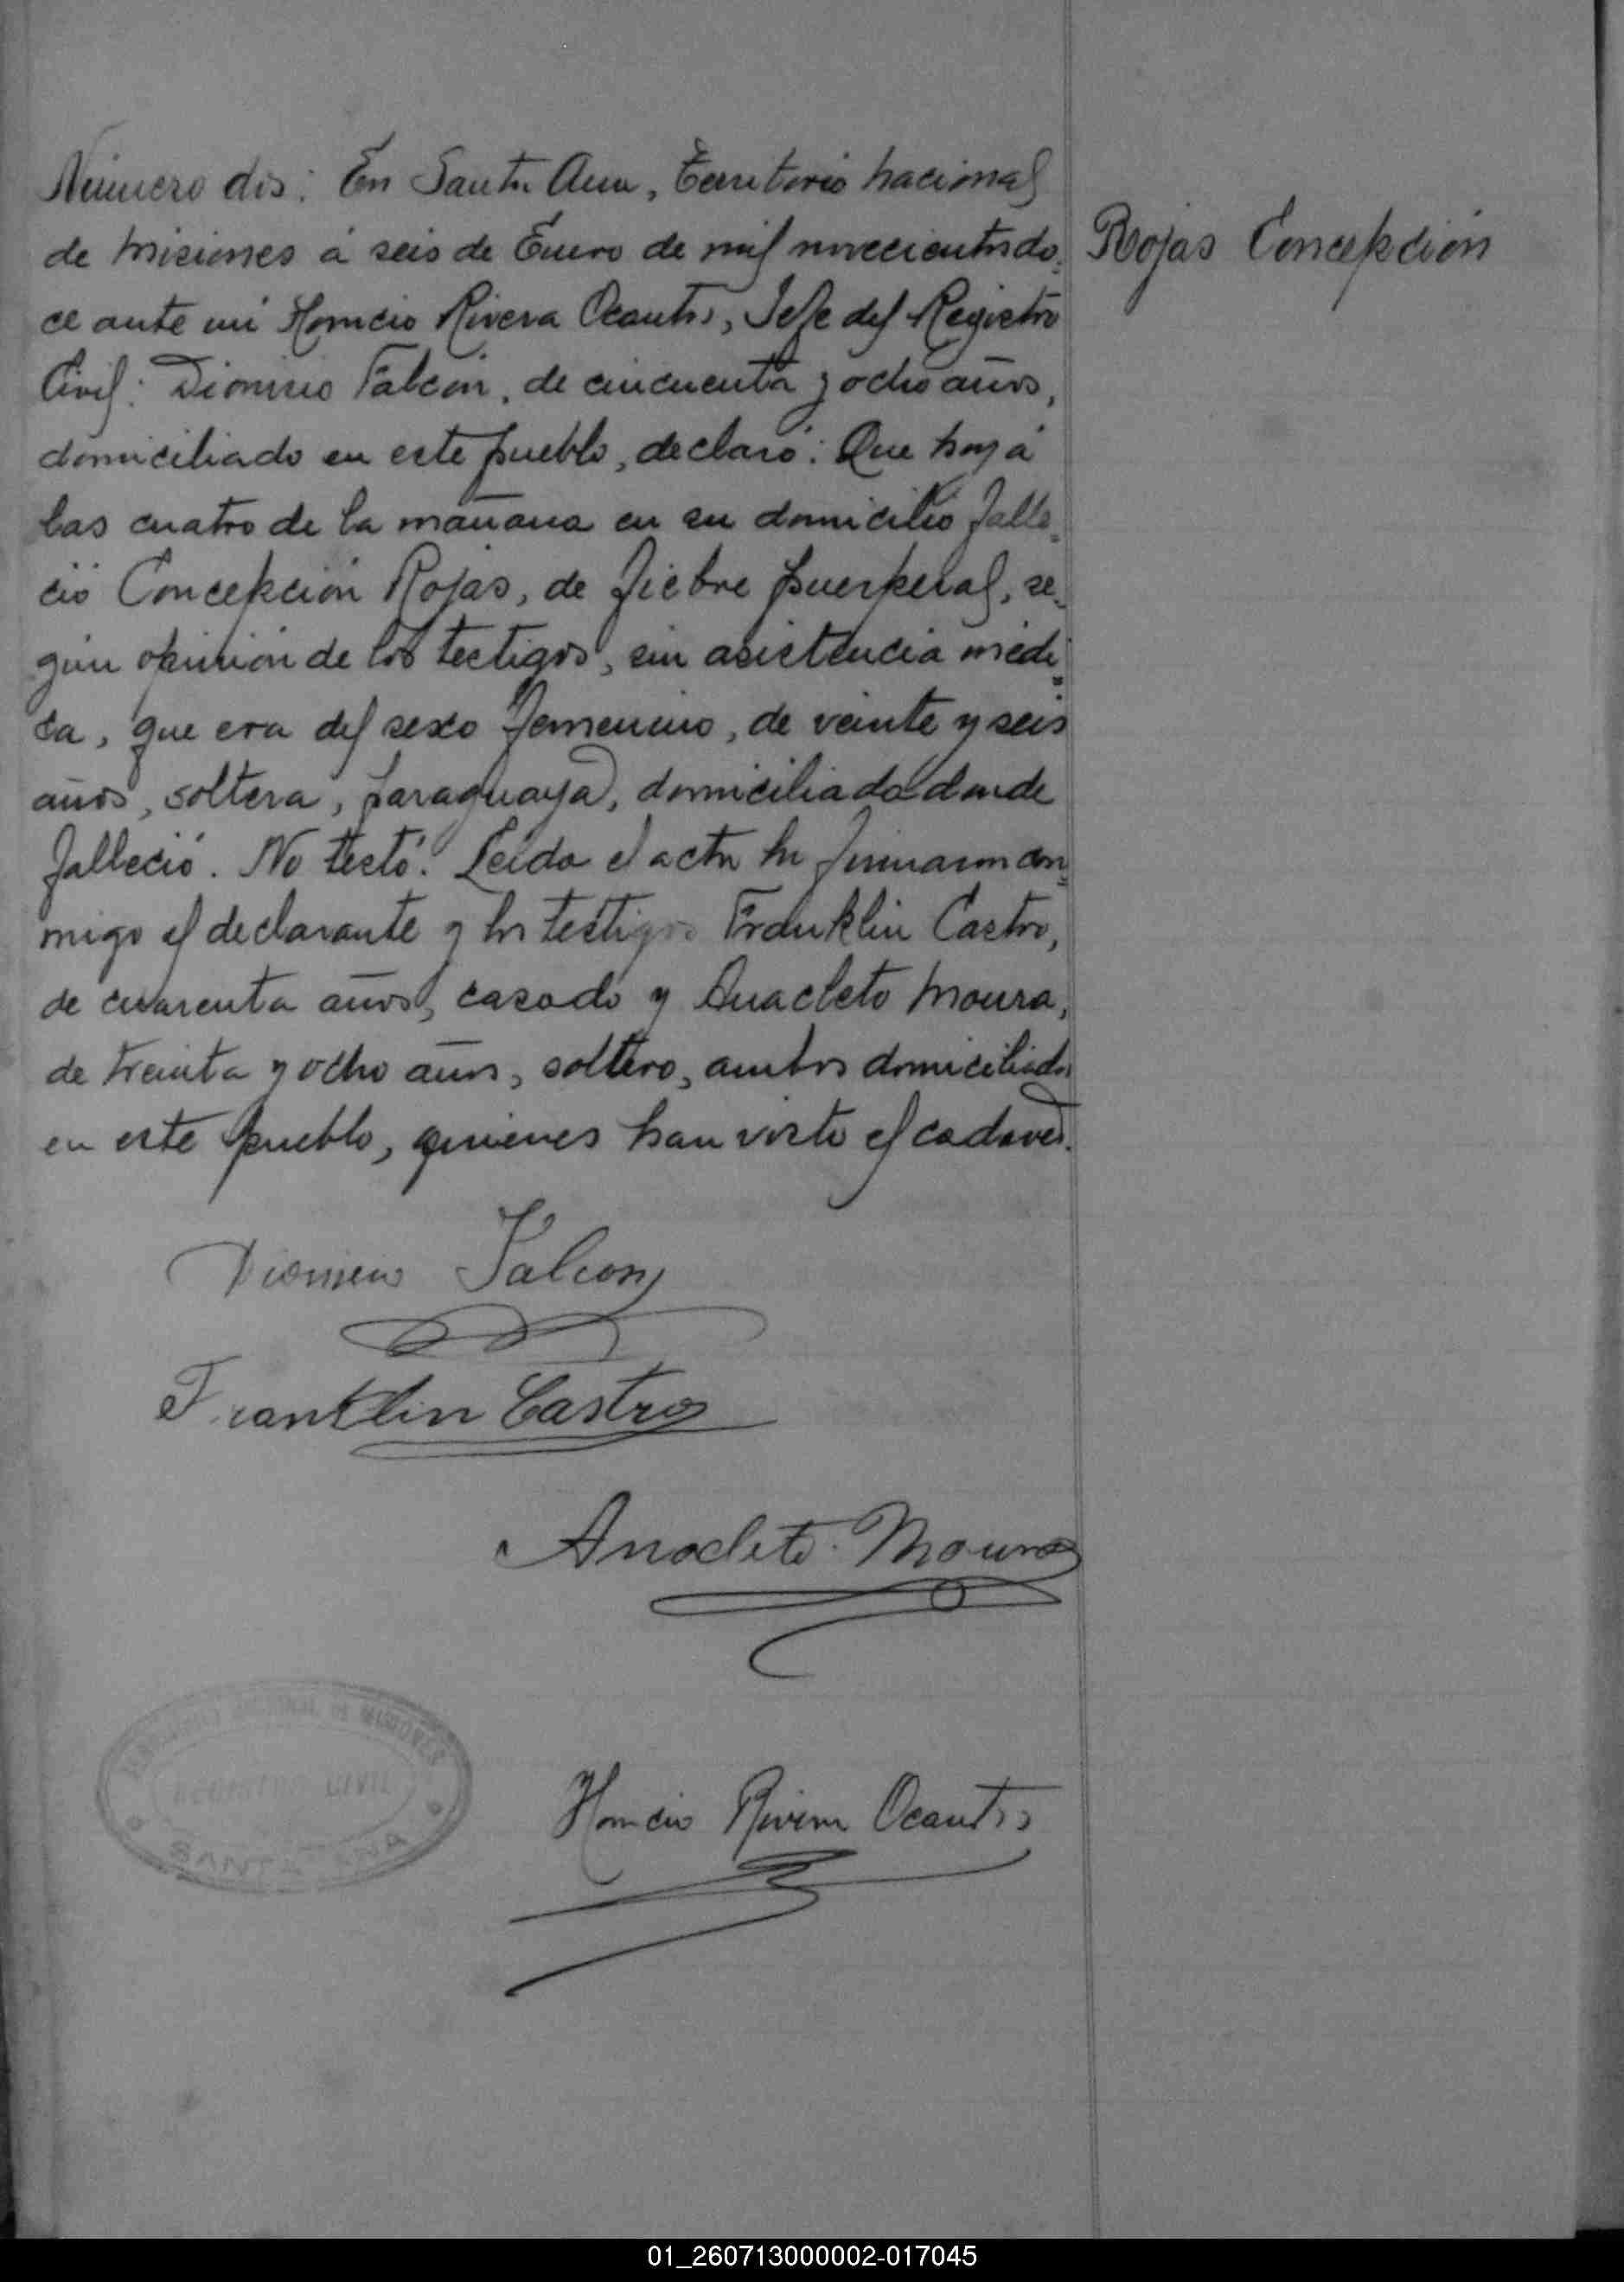 Número dos: En Santa Ana, Territorio nacional
de Misiones á seis de Enero de mil novecientos do-
ce ante mí Horacio Rivera Ocantos, Jefe del Registro
Civil: Dionisio Falcón, de cincuenta y ocho años,
domiciliado en este pueblo, declaró: Que hoy á
las cuatro de la mañana en su domicilio falle-
ció Concepción Rojas, de fiebre puerperal, se-
gún opinión de los testigos, sin asistencia médi-
ca, que era del sexo femenino, de veinte y seis
años, soltera, paraguaya, domiciliada donde
falleció. No testó. Leida el acta la firmaron con-
migo el declarante y los testigos Franklin Castro,
de cuarenta años, casado y Anacleto Moura,
de treinta y ocho años, soltero, ambos domiciliados
en este pueblo, quienes han visto el cadaver.
Rojas Concepción
Dionisio Falcon
Franklin Castro
Anacleto Moura
Horacio Rivera Ocantos
TERRITORIO NACIONAL DE MISIONES
REGISTRO CIVIL
SANTA ANA
01_260713000002-017045